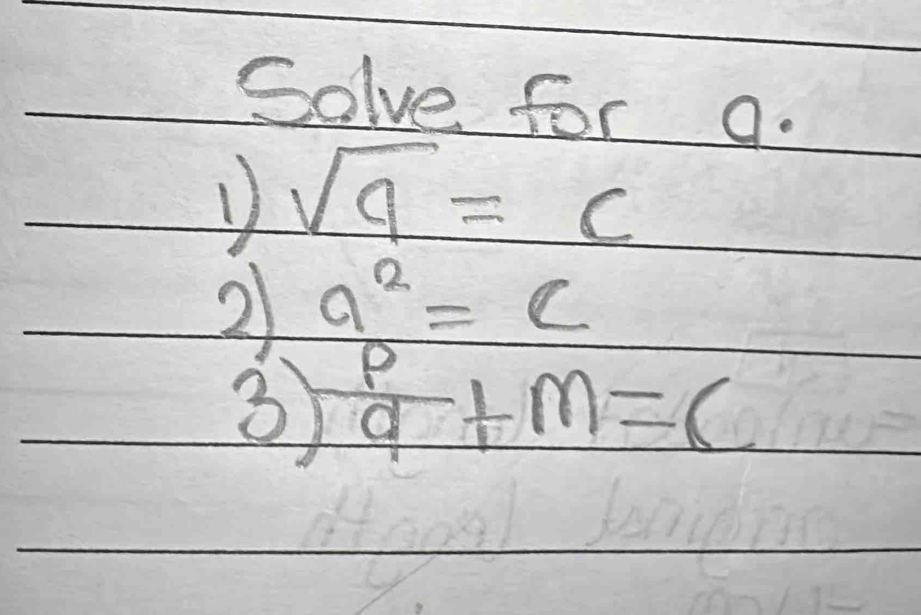 Solve for a.
1) √a = c
2) a² = c
3) p/a + m = c